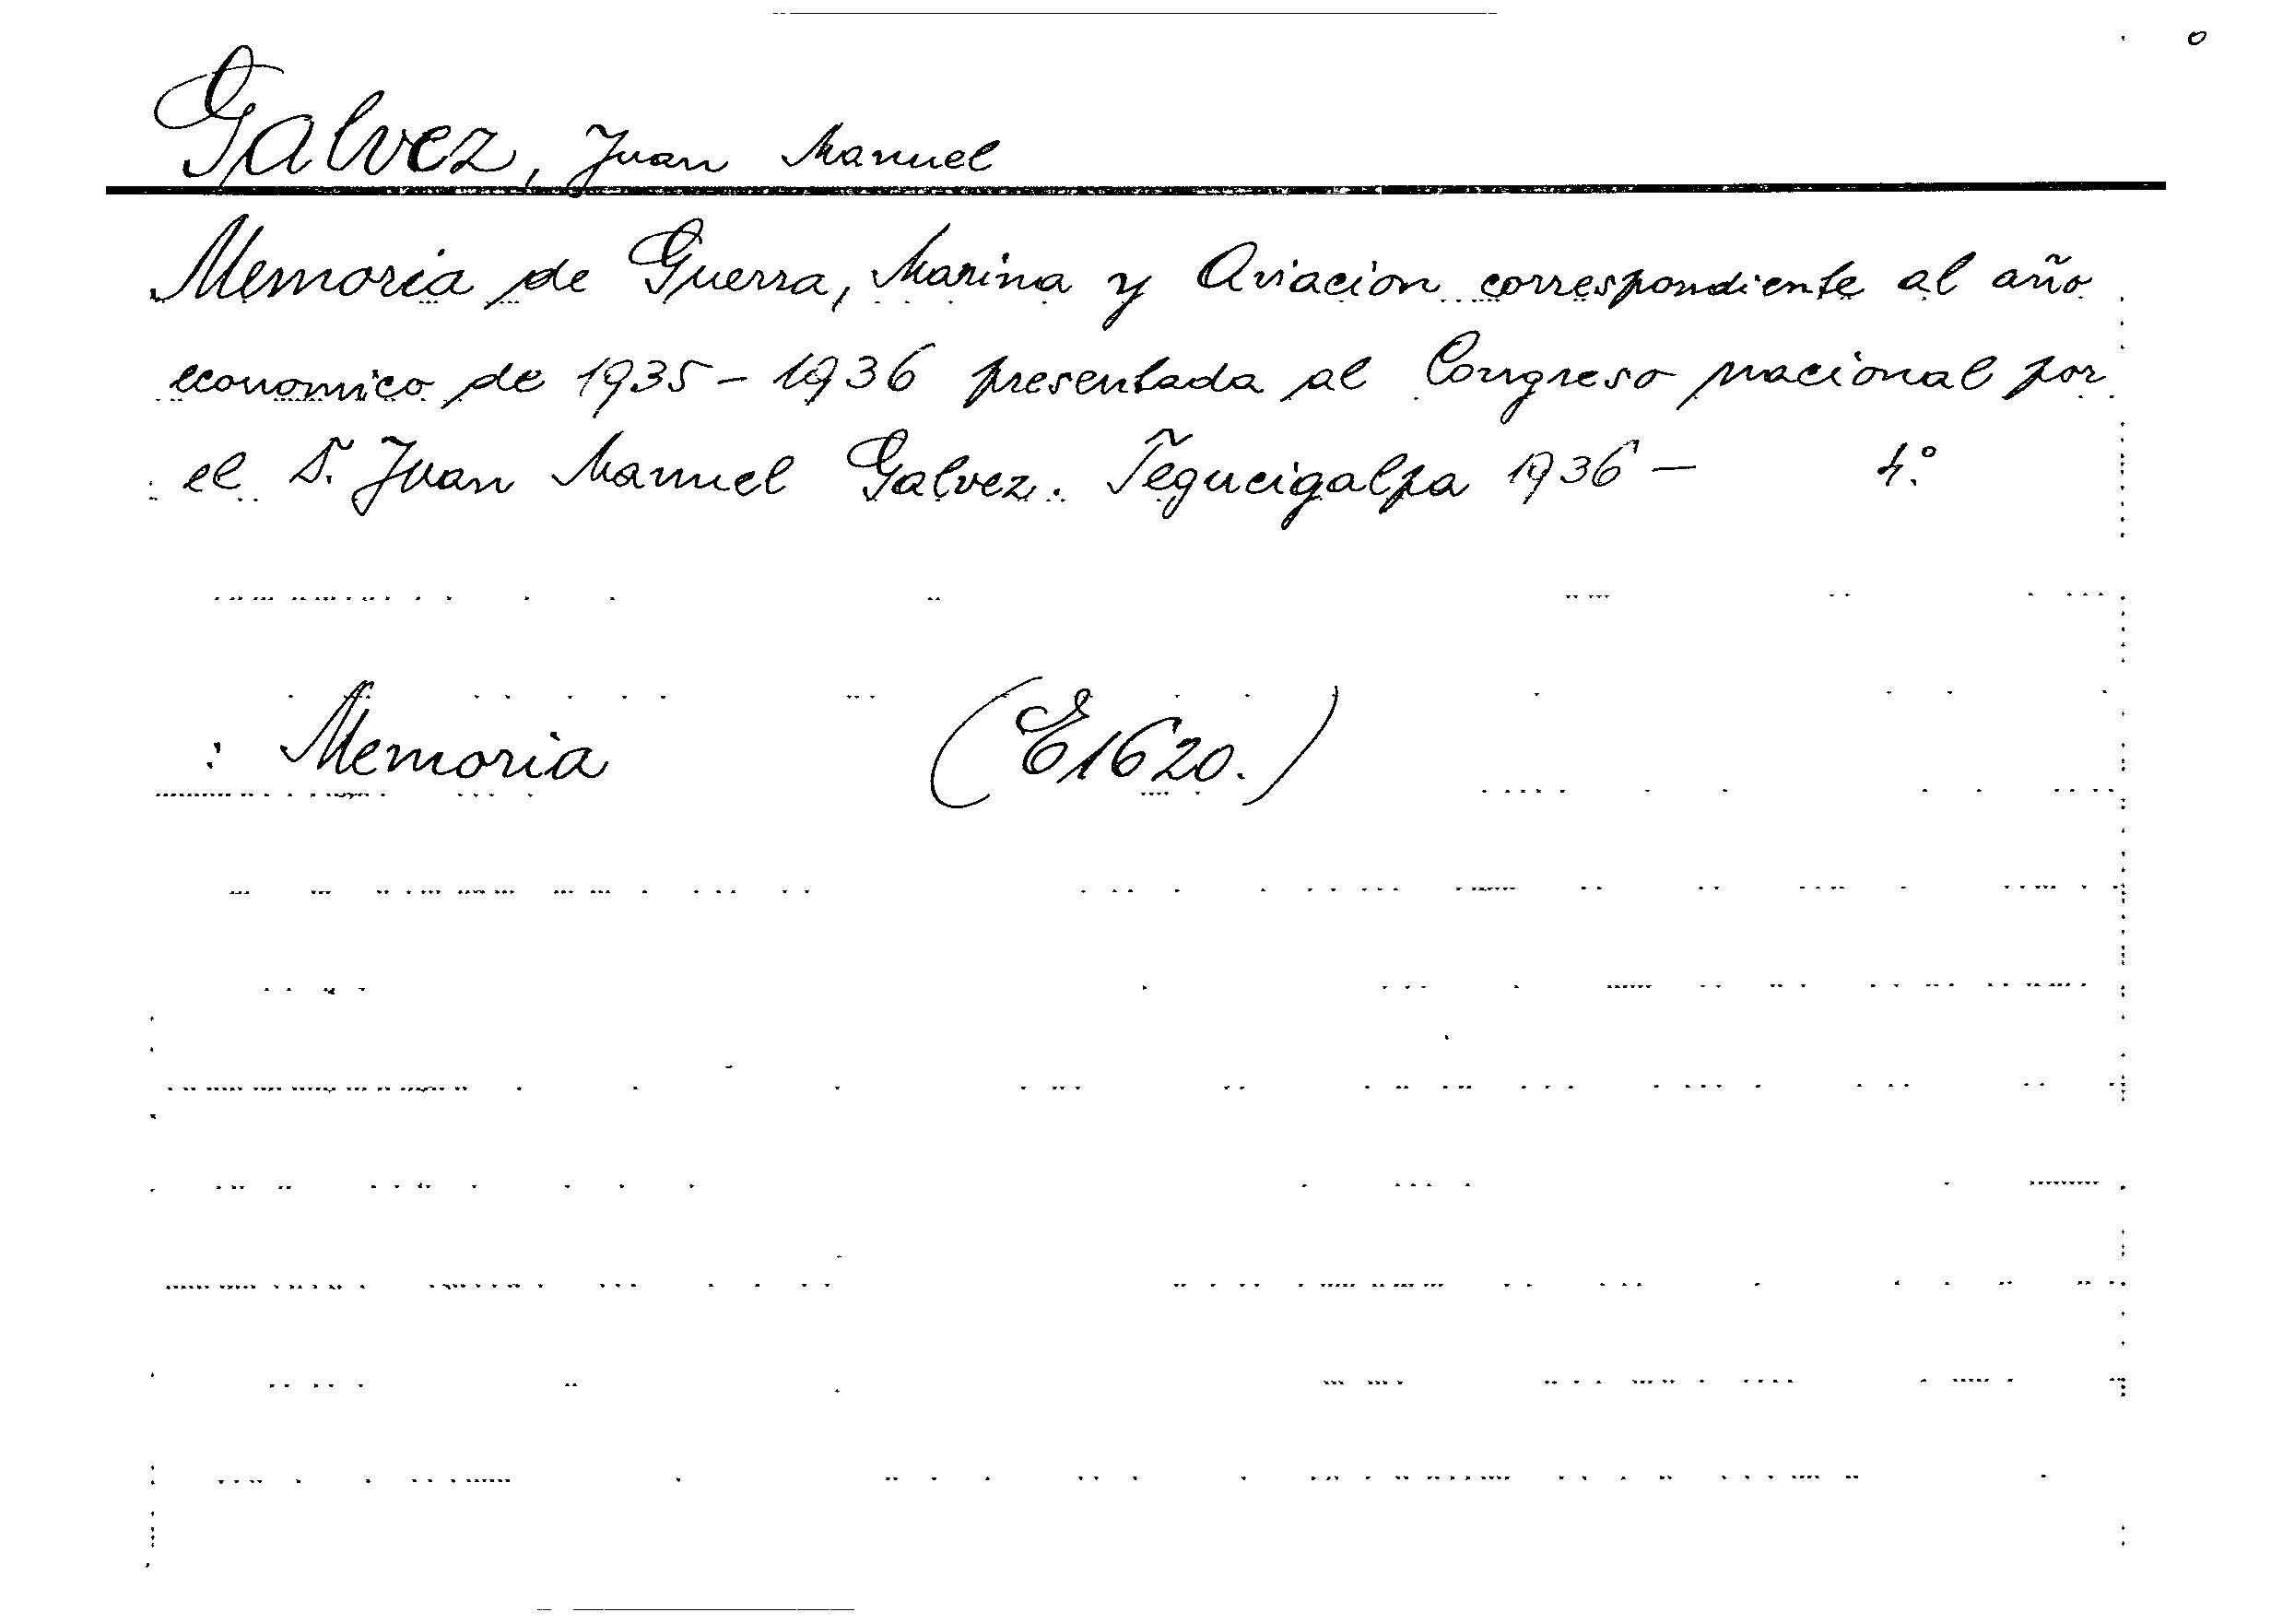 Galvez, Juan Manuel
Memoria de Guerra, Marina y Aviacion correspondiente al año
economico de 1935 - 1936 presentada al Congreso nacional por
el S. Juan Manuel Galvez. Tegucigalpa 1936 - 4.º
: Memoria (E1620.)